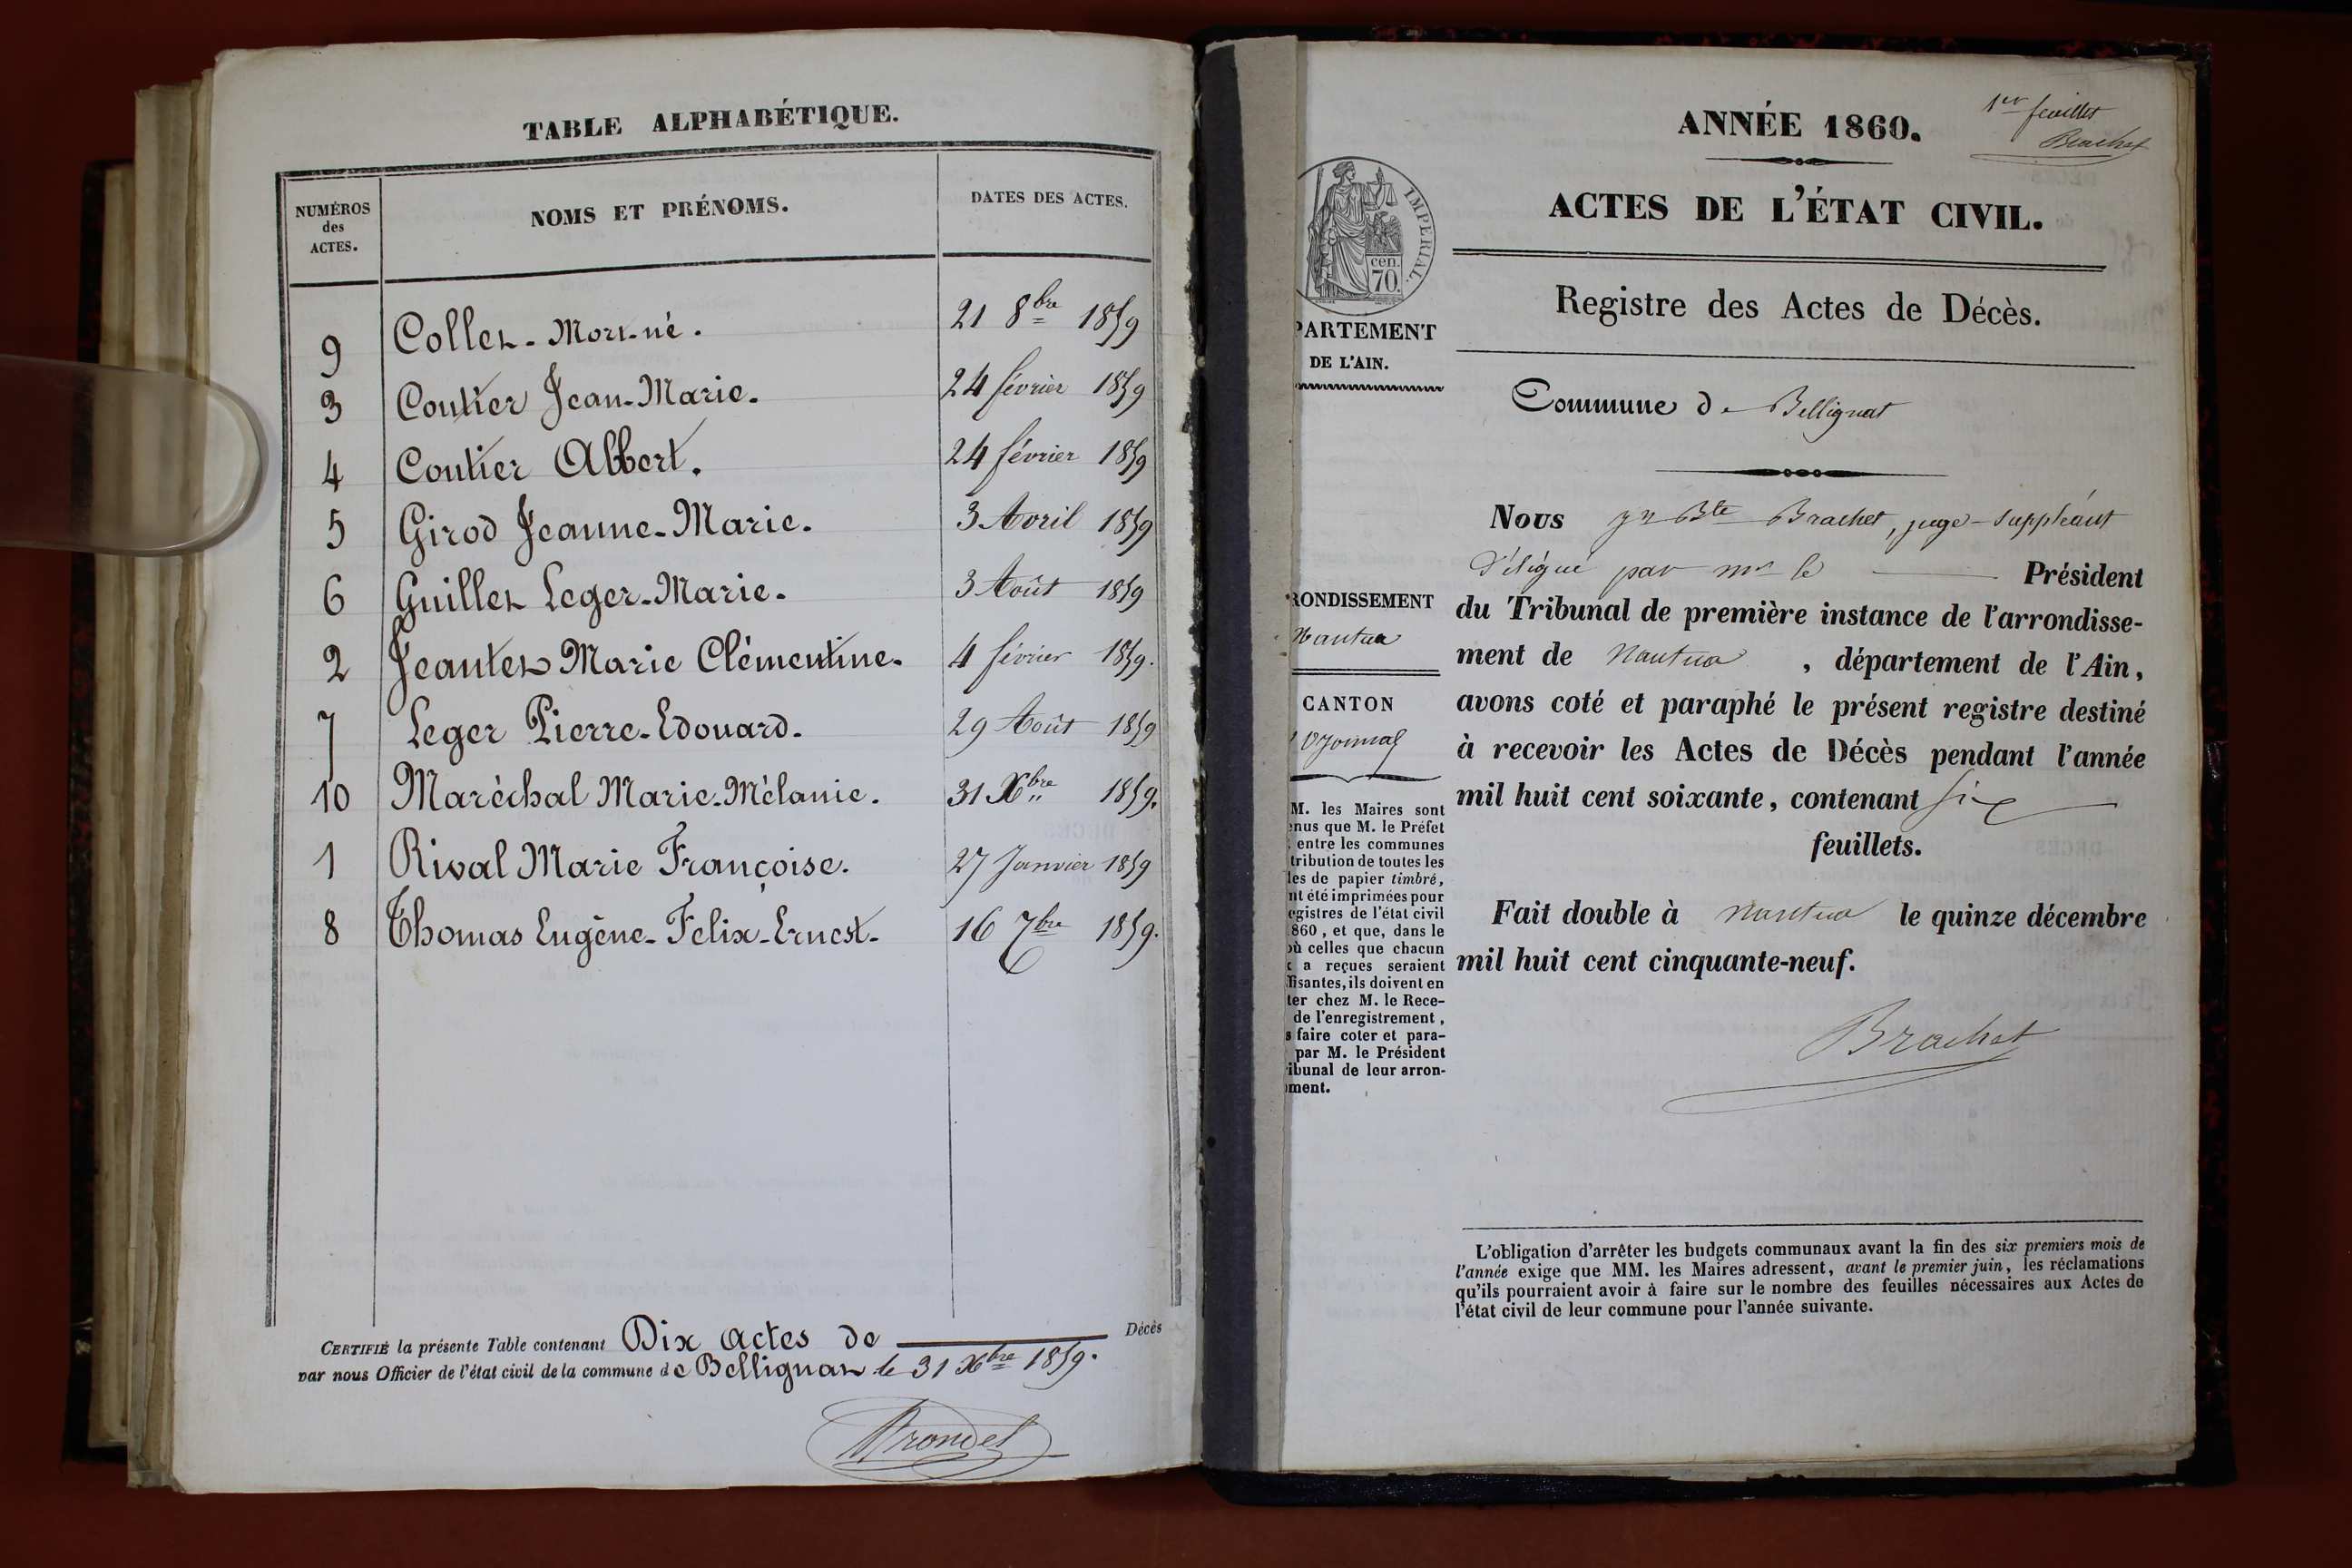 TABLE ALPHABÉTIQUE.
NUMÉROS
des
ACTES.
NOMS ET PRÉNOMS.
DATES DES ACTES.
9 Collet - Mort-né. 21 8bre 1859
3 Coutier Jean-Marie. 24 février 1859
4 Coutier Albert. 24 février 1859
5 Girod Jeanne-Marie. 3 Avril 1859
6 Guillet Leger-Marie. 3 Août 1859
2 Jeantet Marie Clémentine. 4 février 1859.
7 Leger Pierre-Edouard. 29 Août 1859
10 Maréchal Marie-Mélanie. 31 Xbre 1859.
1 Rival Marie Françoise. 27 Janvier 1859
8 Thomas Eugène-Felix-Ernest- 16 7bre 1859.
CERTIFIÉ la présente Table contenant Dix actes de Décès
par nous Officier de l'état civil de la commune de Bellignat le 31 Xbre 1859.
1er feuillet
Brachet
ANNÉE 1860.
ACTES DE L'ÉTAT CIVIL.
Registre des Actes de Décès.
IMPERIAL.
cen.
70.
PARTEMENT
DE L'AIN.
Commune de Bellignat
Nous Jn Bte Brachet, juge-suppléant
délégué par mr le Président
du Tribunal de première instance de l'arrondisse-
ment de Nantua, département de l'Ain,
avons coté et paraphé le présent registre destiné
à recevoir les Actes de Décès pendant l'année
mil huit cent soixante, contenant six
feuillets.
Fait double à Nantua le quinze décembre
mil huit cent cinquante-neuf.
Brachet
RONDISSEMENT
Nantua
CANTON
Oyonnax
M. les Maires sont
enus que M. le Préfet
entre les communes
tribution de toutes les
les de papier timbré,
nt été imprimées pour
egistres de l'état civil
860, et que, dans le
où celles que chacun
a reçues seraient
ffisantes, ils doivent en
ter chez M. le Rece-
de l'enregistrement,
s faire coter et para-
par M. le Président
ribunal de leur arron-
ment.
L'obligation d'arrêter les budgets communaux avant la fin des six premiers mois de
l'année exige que MM. les Maires adressent, avant le premier juin, les réclamations
qu'ils pourraient avoir à faire sur le nombre des feuilles nécessaires aux Actes de
l'état civil de leur commune pour l'année suivante.